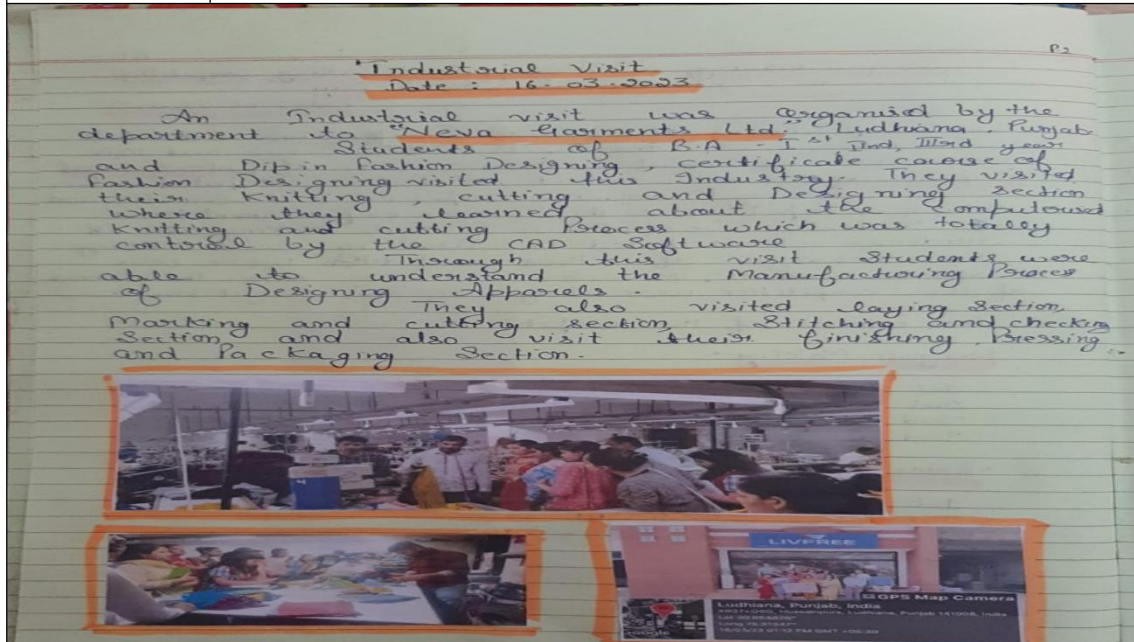 P2
Industrial Visit
Date : 16-03-2023
An Industrial visit was organised by the
department to "Neva Garments Ltd." Ludhiana. Punjab
Students of B.A - Ist IInd, IIIrd year
and Dip in Fashion Designing, certificate course of
Fashion Designing visited this Industry. They visited
their Knitting, cutting and Designing section
where they learned about the computerised
knitting and cutting Process which was totally
control by the CAD Software
Through this visit Students were
able to understand the Manufacturing Process
of Designing Apparels.
They also visited laying Section,
Marking and cutting section, Stitching and checking
Section, and also visit their finishing, Pressing
and Packaging Section.
LIVFREE
GPS Map Camera
Ludhiana, Punjab, India
Ludhiana, Punjab 141008, India
16/03/23 01:12 PM GMT +05:30
Google